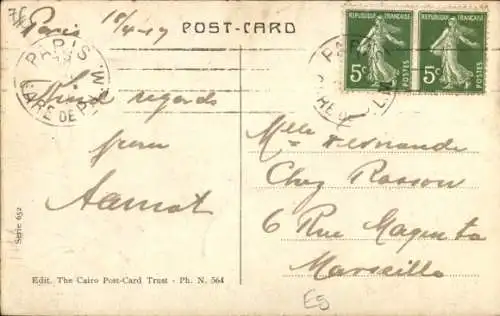 Paris 18/4-19
POST-CARD
PARIS
GARE DE LYON
REPUBLIQUE FRANÇAISE
5c
POSTES
REPUBLIQUE FRANÇAISE
5c
POSTES
Kind regards
from
Mlle Fernande
Chez Rasson
6 Rue Magenta
Marseille
Serie 652
Edit. The Cairo Post-Card Trust - Ph. N. 564
E5